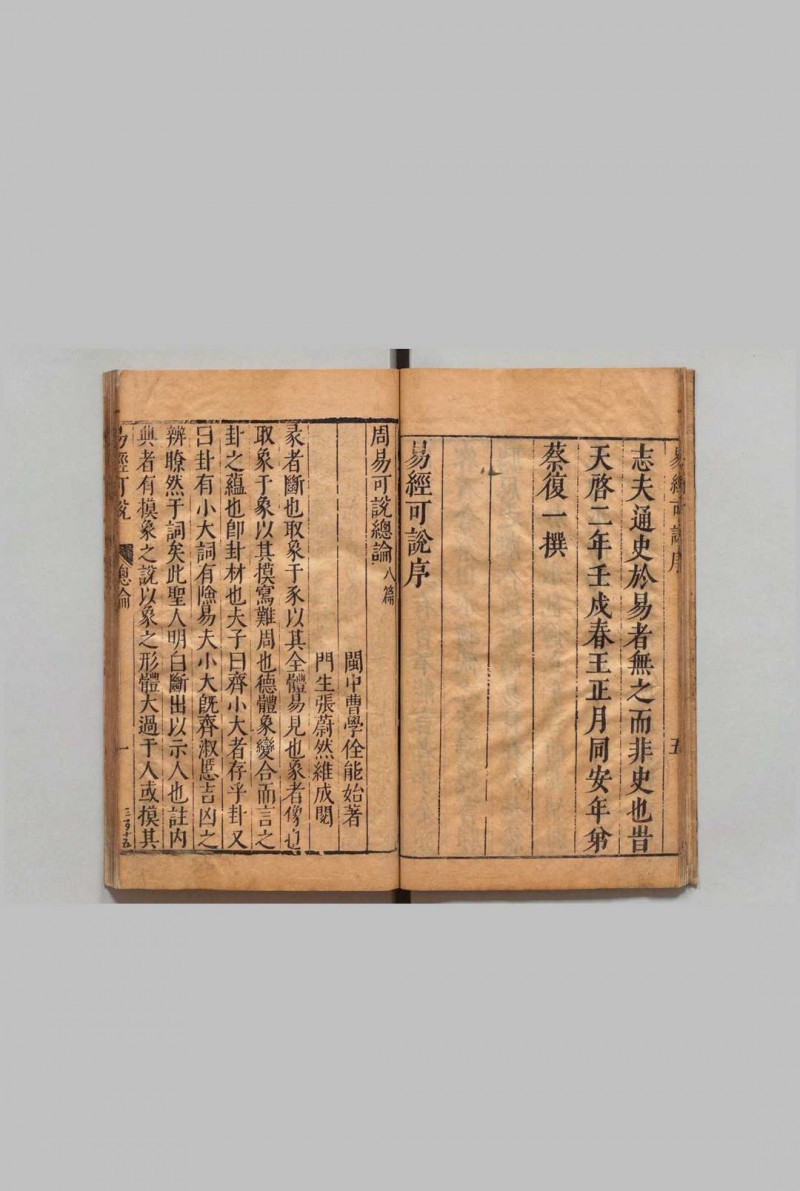 易經可說序
五
志夫通史於易者無之而非史也旹
天啓二年壬戌春王正月同安年弟
蔡復一撰
易經可說序
周易可說總論八篇
閩中曹學佺能始著
門生張蔚然維成閱
彖者斷也取象于豕以其全體易見也象者像也
取象于象以其摸寫難周也德體象變合而言之
卦之蘊也卽卦材也夫子曰齊小大者存乎卦又
曰卦有小大詞有險易夫小大旣齊淑慝吉凶之
辨瞭然于詞矣此聖人明白斷出以示人也註內
典者有摸象之說以象之形體大過于人或摸其
易經可說
總論
一
三百十五